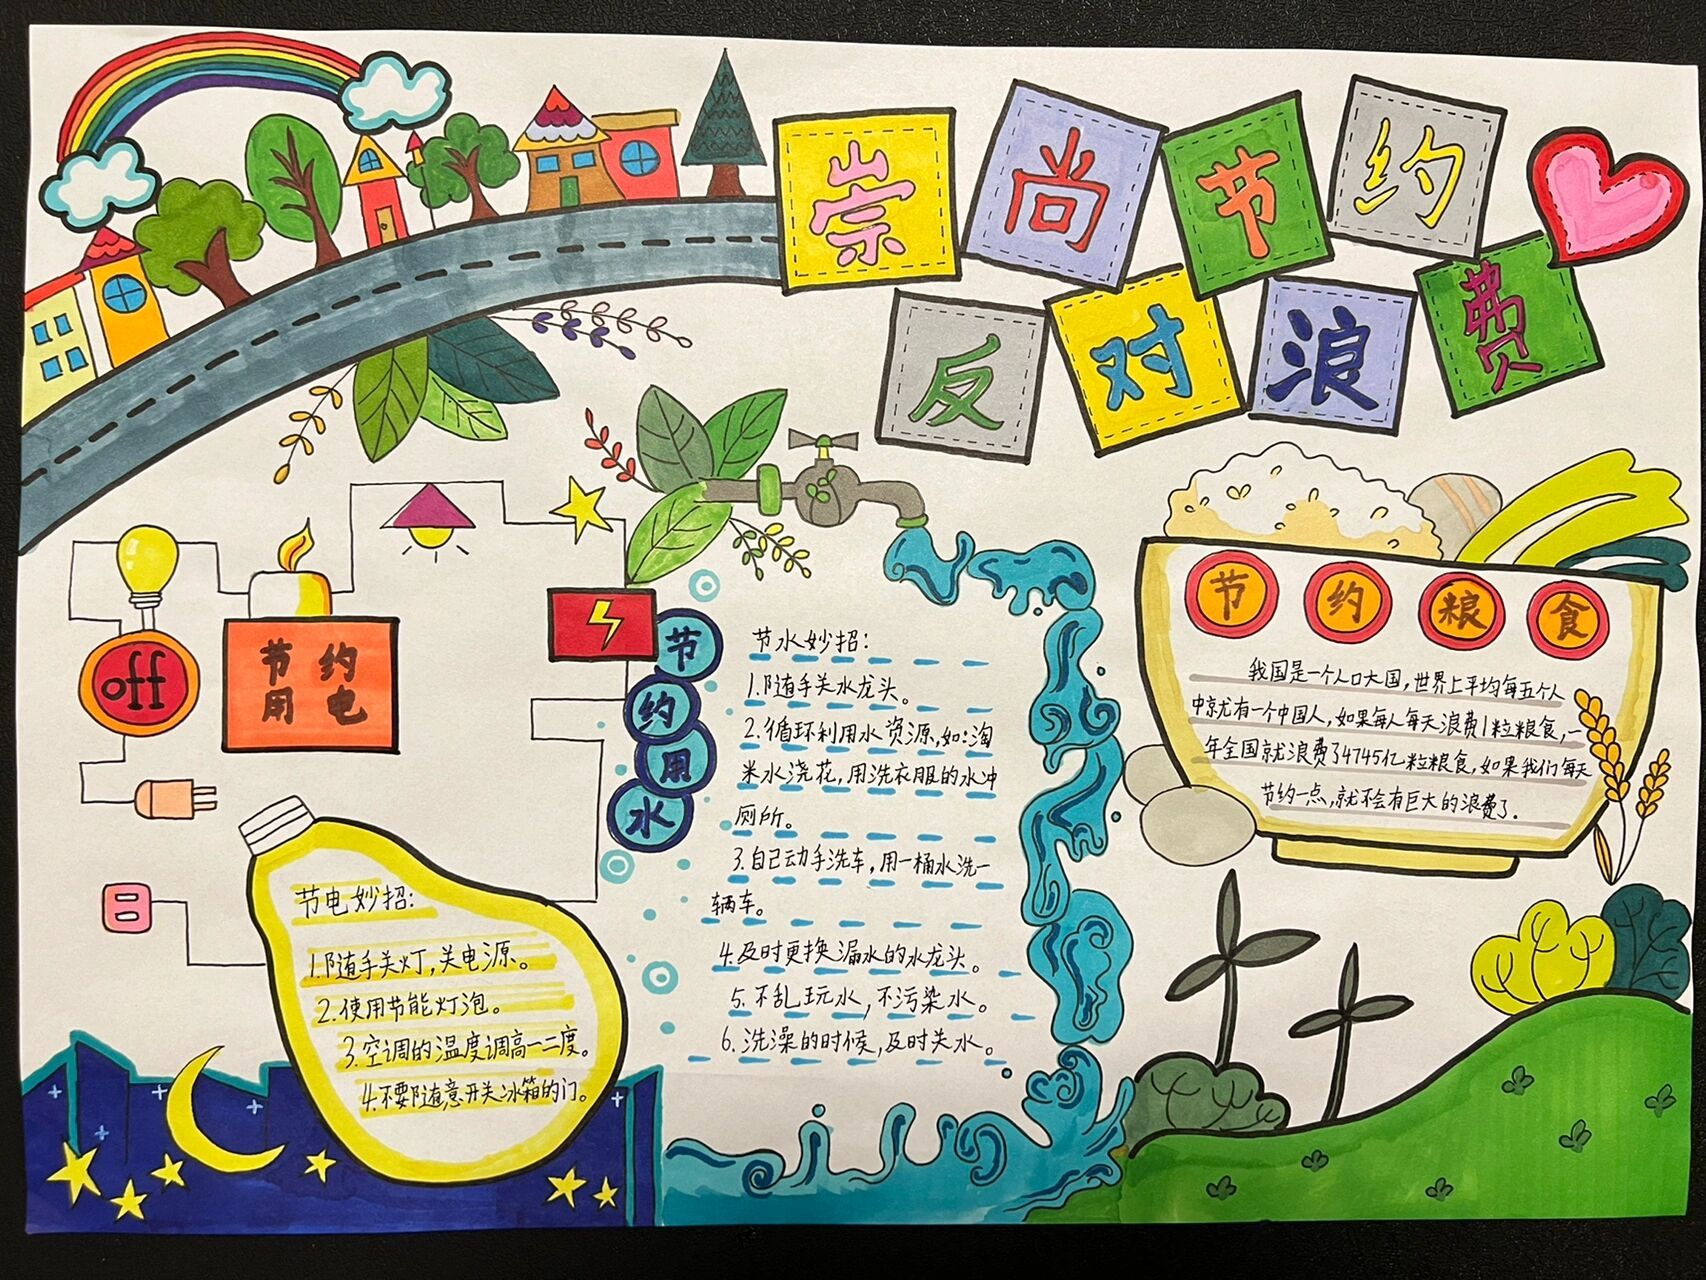 崇尚节约
反对浪费
off
节约
用电
节电妙招:
1.随手关灯,关电源。
2.使用节能灯泡。
3.空调的温度调高一二度。
4.不要随意开关冰箱的门。
节约用水
节水妙招:
1.随手关水龙头。
2.循环利用水资源,如:淘
米水浇花,用洗衣服的水冲
厕所。
3.自己动手洗车,用一桶水洗一
辆车。
4.及时更换漏水的水龙头。
5.不乱玩水,不污染水。
6.洗澡的时候,及时关水。
节约粮食
我国是一个人口大国,世界上平均每五个人
中就有一个中国人,如果每人每天浪费1粒粮食,一
年全国就浪费了4745亿粒粮食,如果我们每天
节约一点,就不会有巨大的浪费了。